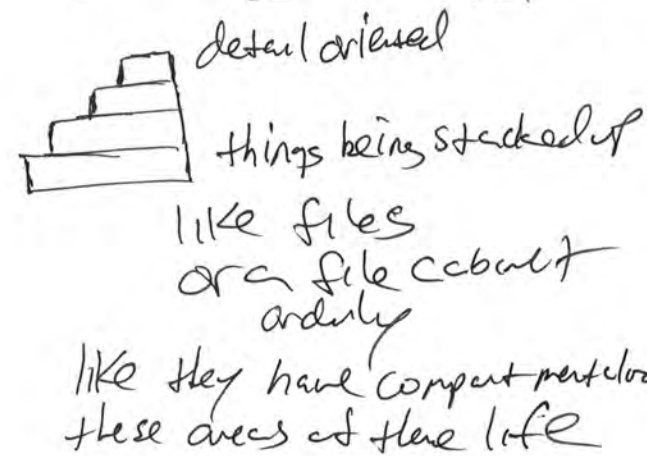 detail oriented
things being stacked up
like files
or a file cabinet
orderly
like they have compartmentaliz
these areas of there life